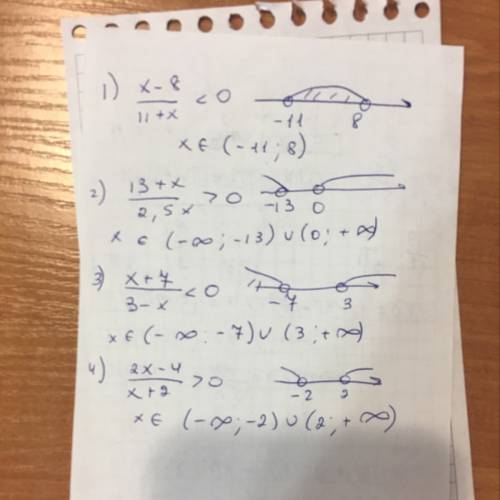 1) (x-8)/(11+x) < 0 -11 8
x ∈ (-11; 8)
2) (13+x)/(2,5x) > 0 -13 0
x ∈ (-∞; -13) ∪ (0; +∞)
3) (x+7)/(3-x) < 0 -7 3
x ∈ (-∞; -7) ∪ (3; +∞)
4) (2x-4)/(x+2) > 0 -2 2
x ∈ (-∞; -2) ∪ (2; +∞)